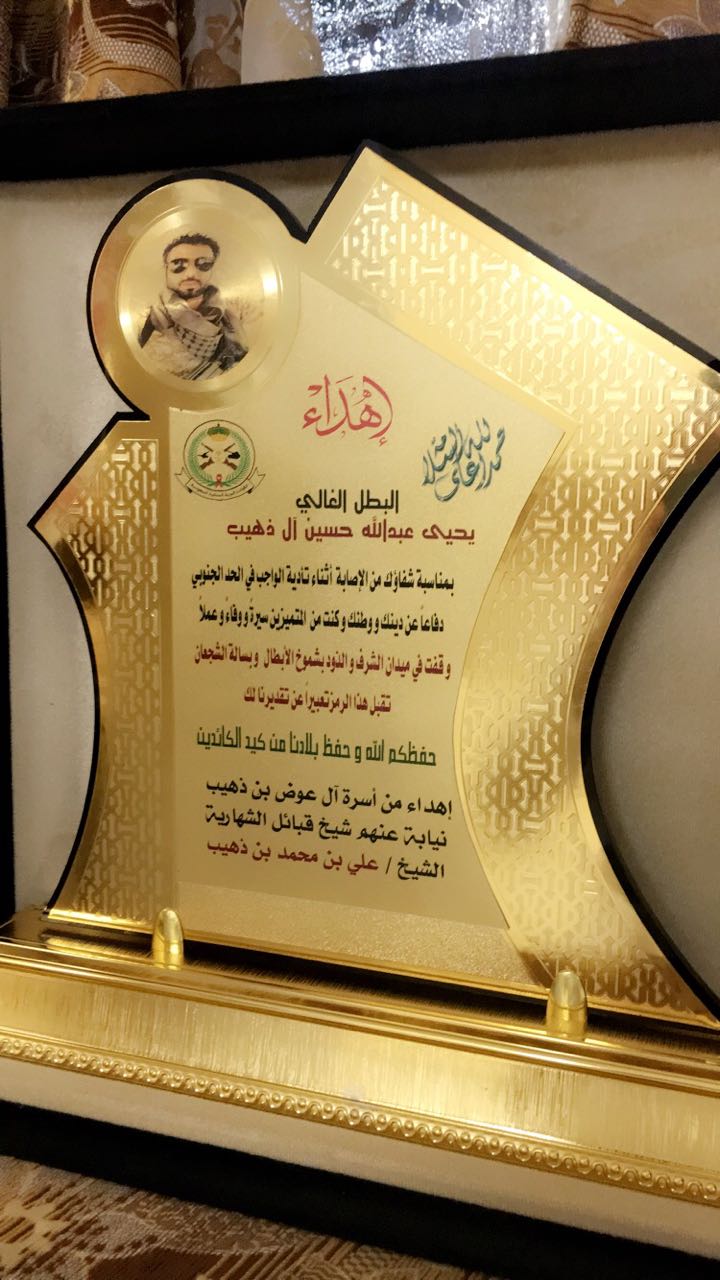 إهْدَاء
حمداً لله على السلامة
البطل الغالي
يحيى عبدالله حسين آل ذهيب
بمناسبة شفاؤك من الإصابة أثناء تأدية الواجب في الحد الجنوبي
دفاعاً عن دينك ووطنك وكنت من المتميزين سيرةً ووفاءً وعملاً
وقفت في ميدان الشرف والذود بشموخ الأبطال وبسالة الشجعان
تقبل هذا الرمز تعبيراً عن تقديرنا لك
حفظكم الله و حفظ بلادنا من كيد الكائدين
إهداء من أسرة آل عوض بن ذهيب
نيابة عنهم شيخ قبائل الشهارية
الشيخ / علي بن محمد بن ذهيب